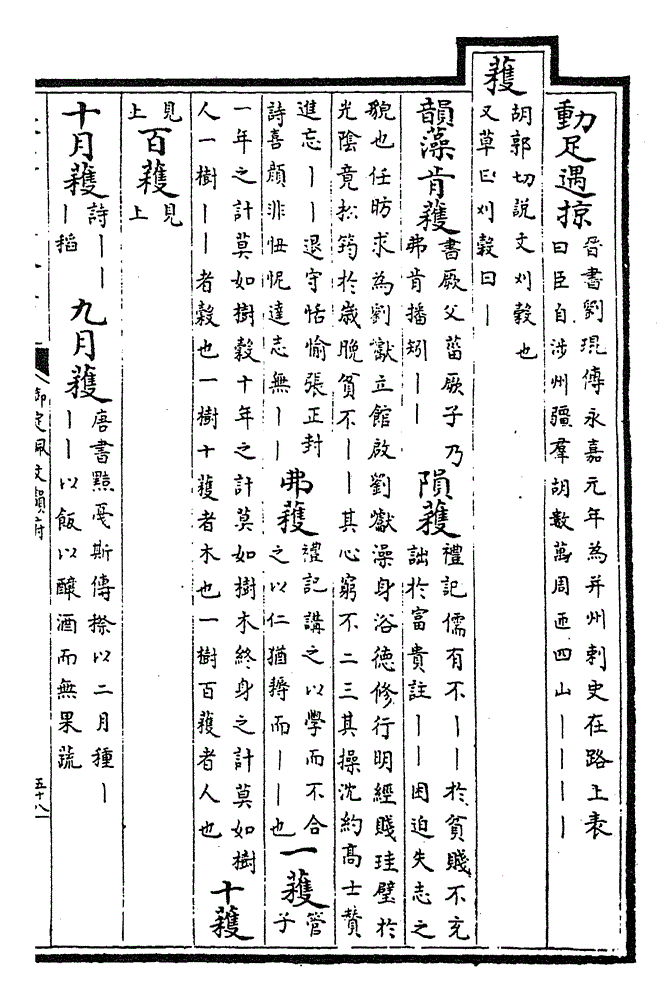 動足遇掠
晉書劉琨傳永嘉元年為并州刺史在路上表
曰臣自涉州疆羣胡數萬周匝四山丨丨丨丨
穫
胡郭切說文刈穀也
又草曰刈穀曰丨
韻藻肯穫
書厥父菑厥子乃
弗肯播矧丨丨
隕穫
禮記儒有不丨丨於貧賤不充
詘於富貴註丨丨困迫失志之
貌也任昉求為劉瓛立館啟劉瓛澡身浴德修行明經賤珪璧於
光陰竟松筠於歲晚貧不丨丨其心窮不二三其操沈約高士贊
進忘丨丨退守恬愉張正封
詩喜顏非忸怩達志無丨丨
弗穫
禮記講之以學而不合
之以仁猶耨而丨丨也
一穫
管
子
一年之計莫如樹穀十年之計莫如樹木終身之計莫如樹
人一樹丨丨者穀也一樹十穫者木也一樹百穫者人也
十穫
見
上
百穫
見
上
十月穫
詩丨丨
丨稻
九月穫
唐書黠戛斯傳穄以二月種丨
丨丨以飯以釀酒而無果蔬
御定佩文韻府
五十八